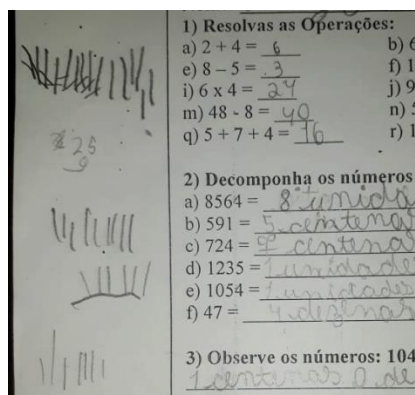 1) Resolvas as Operações:
a) 2 + 4 = 6 b) 6
e) 8 – 5 = 3 f) 1
i) 6 x 4 = 24 j) 9
m) 48 - 8 = 40 n)
q) 5 + 7 + 4 = 16 r) 1
25
9
2) Decomponha os números
a) 8564 = 8 unida
b) 591 = 5 centenas
c) 724 = centenas
d) 1235 = 1 unidade
e) 1054 = 1 unidades
f) 47 = 4 dezenas
3) Observe os números: 104
1 centenas 0 de